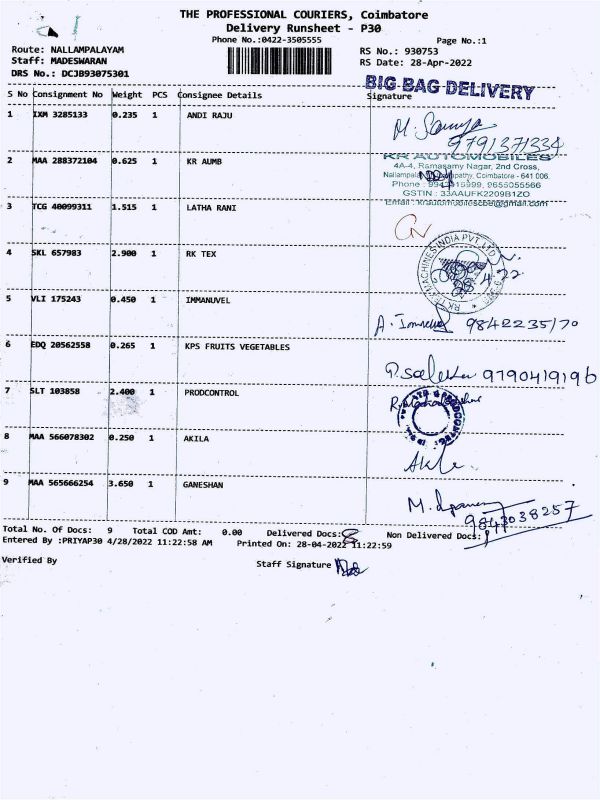 THE PROFESSIONAL COURIERS, Coimbatore
Delivery Runsheet - P30
Phone No.:0422-3505555
Page No.:1
Route: NALLAMPALAYAM
RS No.: 930753
Staff: MADESWARAN
RS Date: 28-Apr-2022
DRS No.: DCJB93075301
BIG BAG DELIVERY
S No Consignment No Weight PCS Consignee Details Signature
1 IXM 3285133 0.235 1 ANDI RAJU
9791371334
2 MAA 288372104 0.625 1 KR AUMB
KR AUTOMOBILES
4A-4, Ramasamy Nagar, 2nd Cross,
Coimbatore - 641 006.
9655055566
GSTIN : 33AAUFK2209B1ZO
3 TCG 40099311 1.515 1 LATHA RANI
4 SKL 657983 2.900 1 RK TEX
MACHINES INDIA PVT. LTD
5 VLI 175243 0.450 1 IMMANUVEL
6 EDQ 20562558 0.265 1 KPS FRUITS VEGETABLES
9790419196
7 SLT 103858 2.400 1 PRODCONTROL
8 MAA 566078302 0.250 1 AKILA
9 MAA 565666254 3.650 1 GANESHAN
Total No. Of Docs: 9 Total COD Amt: 0.00 Delivered Docs: 8 Non Delivered Docs: 1
Entered By :PRIYAP30 4/28/2022 11:22:58 AM Printed On: 28-04-2022 11:22:59
Verified By
Staff Signature